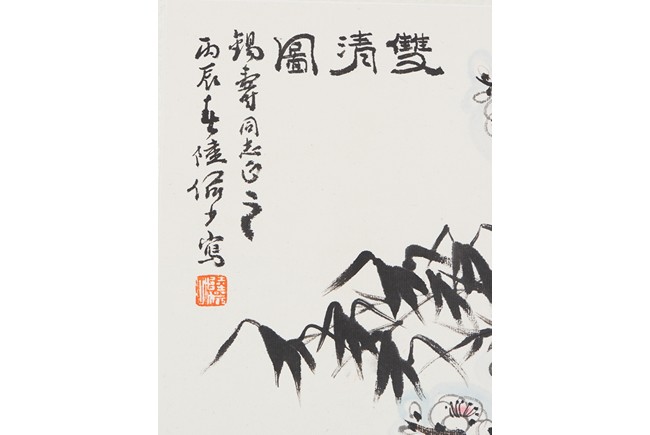 雙清圖
錫壽同志正之
丙辰春陸儼少寫